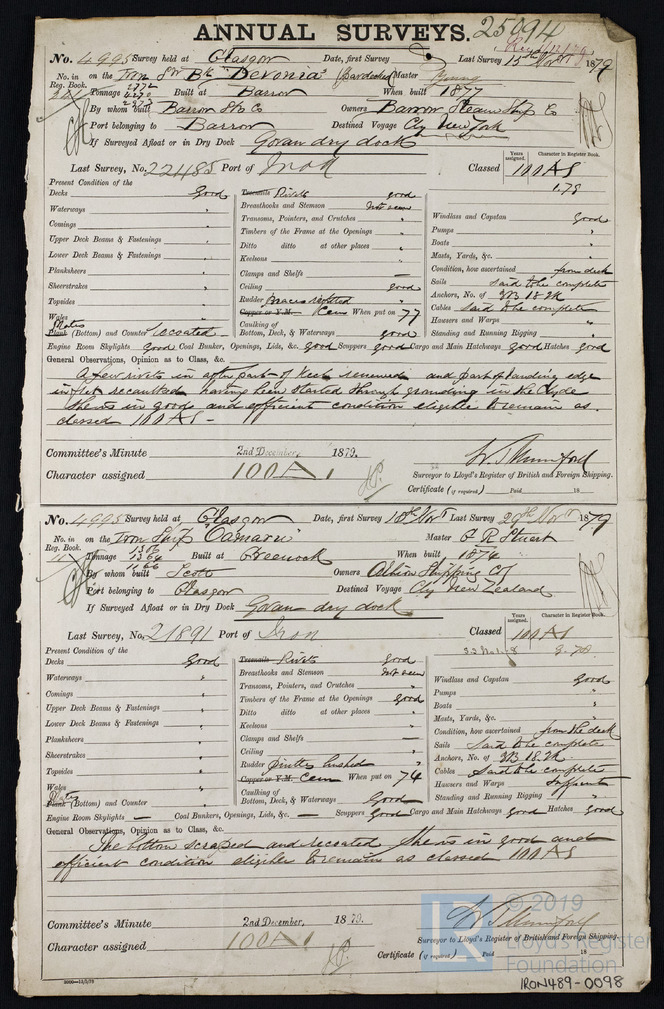 ANNUAL SURVEYS. 25094
No. 4995 Survey held at Glasgow Date, first Survey Last Survey 15th Nov 1879
No. in on the Iron Sr Bk "Devonia" Master Young
Reg. Book. Tonnage 2772 4270 2973 Built at Barrow When built 1877
By whom built Barrow S.B. Co Owners Barrow Steam Ship Co
Port belonging to Barrow Destined Voyage Cly New York
If Surveyed Afloat or in Dry Dock Govan dry dock
Last Survey, No. 22485 Port of Iron Classed 100A1
Years assigned. Character in Register Book.
1.79
Present Condition of the
Decks Good
Waterways "
Comings "
Upper Deck Beams & Fastenings "
Lower Deck Beams & Fastenings "
Planksheers "
Sheerstrakes "
Topsides "
Wales "
Plates Plank (Bottom) and Counter recoated
Treenails Rivets good
Breasthooks and Stemson Not seen
Transoms, Pointers, and Crutches "
Timbers of the Frame at the Openings "
Ditto ditto at other places "
Keelsons "
Clamps and Shelfs —
Ceiling good
Rudder Braces refitted "
Copper or Y.M. Cem When put on 77
Caulking of
Bottom, Deck, & Waterways good
Windlass and Capstan good
Pumps "
Boats "
Masts, Yards, &c. "
Condition, how ascertained from deck
Sails said to be complete
Anchors, No. of 3B 1S 2K
Cables said to be complete
Hawsers and Warps "
Standing and Running Rigging "
Engine Room Skylights Good Coal Bunker, Openings, Lids, &c. good Scuppers good Cargo and Main Hatchways good Hatches good
General Observations, Opinion as to Class, &c.
A few rivets in after part of keel renewed and part of landing edge
in recaulked having been started through grounding in the Clyde
She is in good and efficient condition eligible to remain as
classed 100A1 –
Committee's Minute 2nd December, 1879.
Character assigned 100A1
W. T. Mumford
Surveyor to Lloyd's Register of British and Foreign Shipping.
Certificate (if required) Paid 18
No. 4995 Survey held at Glasgow Date, first Survey 18th Novr Last Survey 29th Novr 1879
No. in on the Iron Ship "Oamaru" Master G R Stuart
Reg. Book. Tonnage 1306 1364 1166 Built at Greenock When built 1874
By whom built Scott Owners Albion Shipping Co
Port belonging to Glasgow Destined Voyage Cly New Zealand
If Surveyed Afloat or in Dry Dock Govan dry dock
Last Survey, No. 21891 Port of Iron Classed 100A1
Years assigned. Character in Register Book.
Present Condition of the
Decks Good
Waterways "
Comings "
Upper Deck Beams & Fastenings "
Lower Deck Beams & Fastenings "
Planksheers "
Sheerstrakes "
Topsides "
Wales "
Plates Plank (Bottom) and Counter "
Treenails Rivets Good
Breasthooks and Stemson Not seen
Transoms, Pointers, and Crutches "
Timbers of the Frame at the Openings Good
Ditto ditto at other places "
Keelsons "
Clamps and Shelfs —
Ceiling "
Rudder Pintles bushed "
Copper or Y.M. Cem When put on 74
Caulking of
Bottom, Deck, & Waterways Good
Windlass and Capstan Good
Pumps "
Boats "
Masts, Yards, &c. "
Condition, how ascertained from the deck
Sails Said to be complete
Anchors, No. of 3B 1S 2K
Cables Said to be complete
Hawsers and Warps Sufficient
Standing and Running Rigging "
Engine Room Skylights — Coal Bunkers, Openings, Lids, &c. — Scuppers Good Cargo and Main Hatchways Good Hatches Good
General Observations, Opinion as to Class, &c.
The bottom scraped and recoated She is in good and
efficient condition eligible to remain as classed 100A1
Committee's Minute 2nd December, 1879.
Character assigned 100A1
W. T. Mumford
Surveyor to Lloyd's Register of British and Foreign Shipping.
Certificate (if required) Paid 18
© 2019
Lloyd's Register
Foundation
IRON489-0098